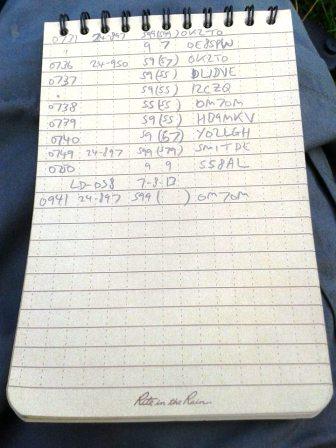 0721 24-897 599(599) OK2TO
" 9 7 OE8SPW
0736 24-950 59(57) OK2TO
0737 59(55) DL1DVE
" 59(55) I2CZQ
0738 55(55) OM7OM
0739 59(55) HB9MKV
0740 59(57) YO2LGH
0749 24-897 599(579) SM1TDE
0800 9 9 S58AL
LD-058 7-8-13
0941 24-897 599( ) OM7OM
Rite in the Rain